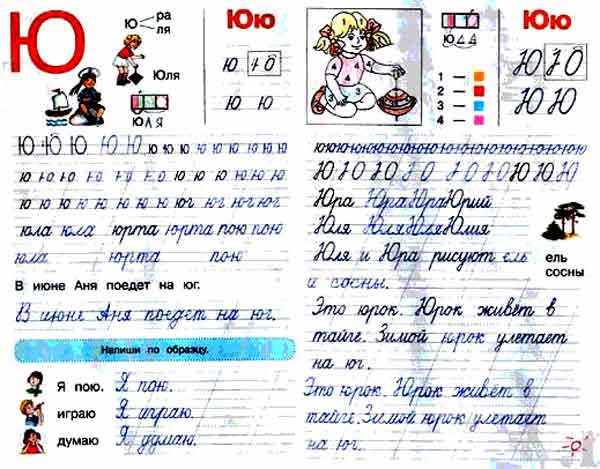 Ю
ра
ля
Юля
ЮЛЯ
Юю
Ю Ю
Ю Ю Ю Ю Ю ю ю ю ю ю ю ю ю ю
ю ю ю ю ю ю ю ю ю ю ю ю ю
ю ю ю ю ю ю ю ю юг юг юг юг
юла юла юрта юрта пою пою
юла юрта пою
В июне Аня поедет на юг.
В июне Аня поедет на юг.
Напиши по образцу.
Я пою. Я пою.
играю Я играю.
думаю Я думаю.
Юю
1 —
2 —
3 —
4 —
Ю Ю
Ю Ю
Юра Юра Юра Юрий
Юля Юля Юля Юлия
Юля и Юра рисуют ель
и сосны.
ель
сосны
Это юрок. Юрок живёт в
тайге. Зимой юрок улетает
на юг.
Это юрок. Юрок живёт в
тайге. Зимой юрок улетает
на юг.